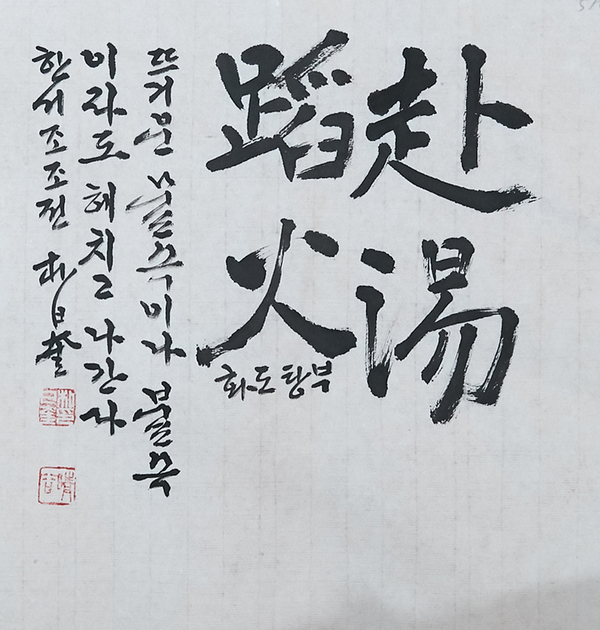 赴湯
蹈火
부탕도화
뜨거운 물속이나 불속
이라도 헤치고 나간다
한서 조조전